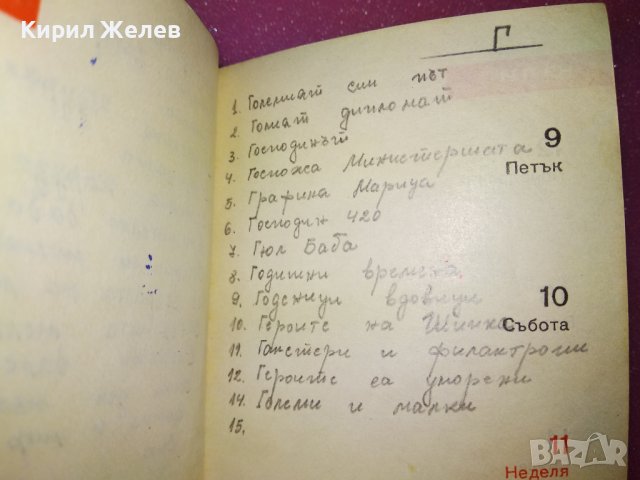 Кирил Желев
Г
1. Големият син път
2. Голият дипломат
3. Господинът
4. Госпожа Министершата
9
Петък
5. Графиня Марица
6. Господин 420
7. Гюл Баба
8. Годишни времена
9. Годежници вдовици
10. Героите на Шипка
10
Събота
11. Гангстери и филантропи
12. Героите са уморени
14. Големи и малки
15.
11
Неделя
BAZAR